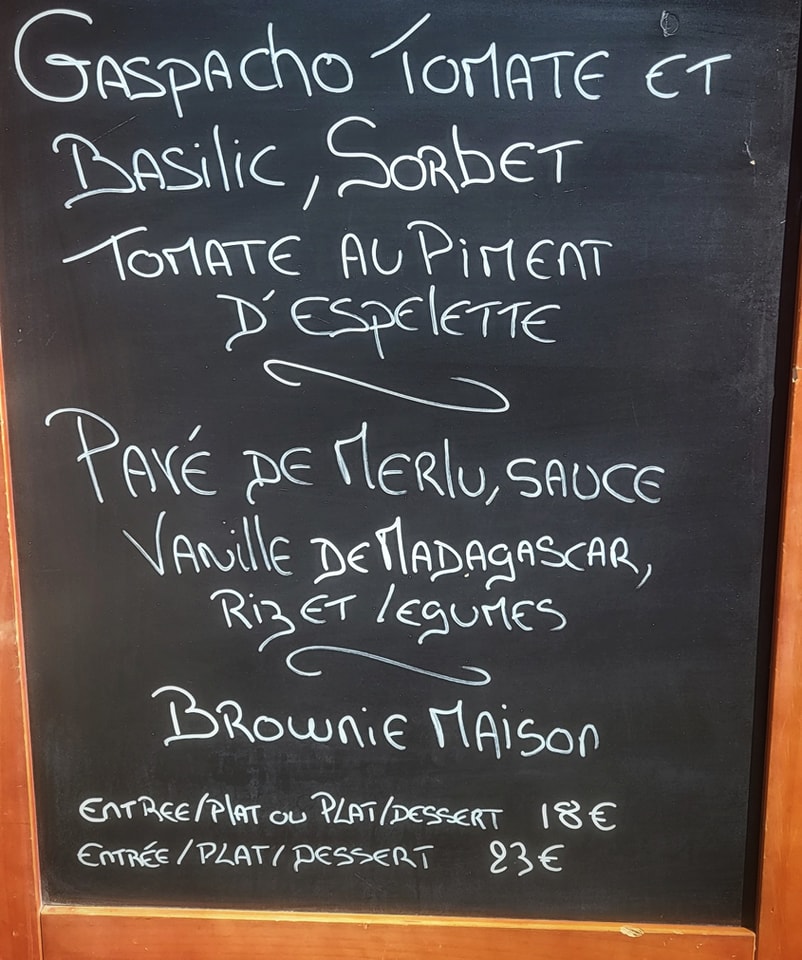 Gaspacho Tomate et
Basilic, Sorbet
Tomate au Piment
d'Espelette
Pavé de Merlu, sauce
Vanille de Madagascar,
Riz et légumes
Brownie Maison
Entree/Plat ou Plat/Dessert 18€
Entrée/Plat/Dessert 23€